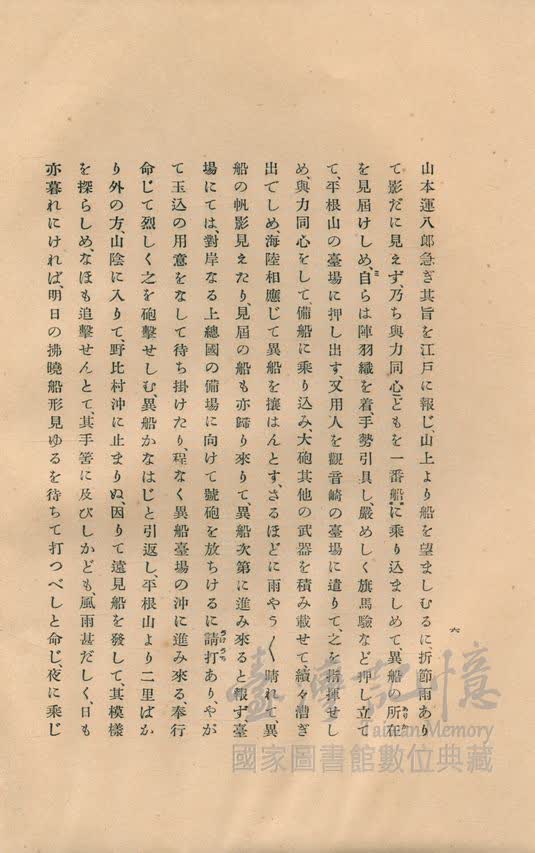 六
山本運八郎急ぎ其旨を江戸に報じ、山上より船を望ましむるに、折節雨あり
て影だに見えず、乃ち與力同心どもを一番船に乘り込ましめて、異船の所在
を見屆けしめ、自らは陣羽織を着、手勢引具し、嚴めしく旗馬驗など押し立て
て、平根山の臺場に押し出す、又用人を觀音崎の臺場に遣りて、之を指揮せし
め、與力同心をして、備船に乘り込み、大砲其他の武器を積み載せて續々漕ぎ
出でしめ、海陸相應じて異船を攘はんとす、さるほどに雨やう〱晴れて異
船の帆影見えたり、見屆の船も亦歸り來りて、異船次第に進み來ると報ず臺
場にては、對岸なる上總國の備場に向けて號砲を放ちけるに請打あり、やが
て玉込の用意をなして待ち掛けたり、程なく異船臺場の沖に進み來る、奉行
命じて烈しく之を砲擊せしむ、異船かなはじと引返し、平根山より二里ばか
り外の方、山陰に入りて、野比村沖に止まりぬ、因りて遠見船を發して、其模樣
を探らしめ、なほも追擊せんとて、其手筈に及びしかども、風雨甚だしく、日も
亦暮れにければ、明日の拂曉船形見ゆるを待ちて打つべしと命じ、夜に乘じ
臺灣記憶
Taiwan Memory
國家圖書館數位典藏